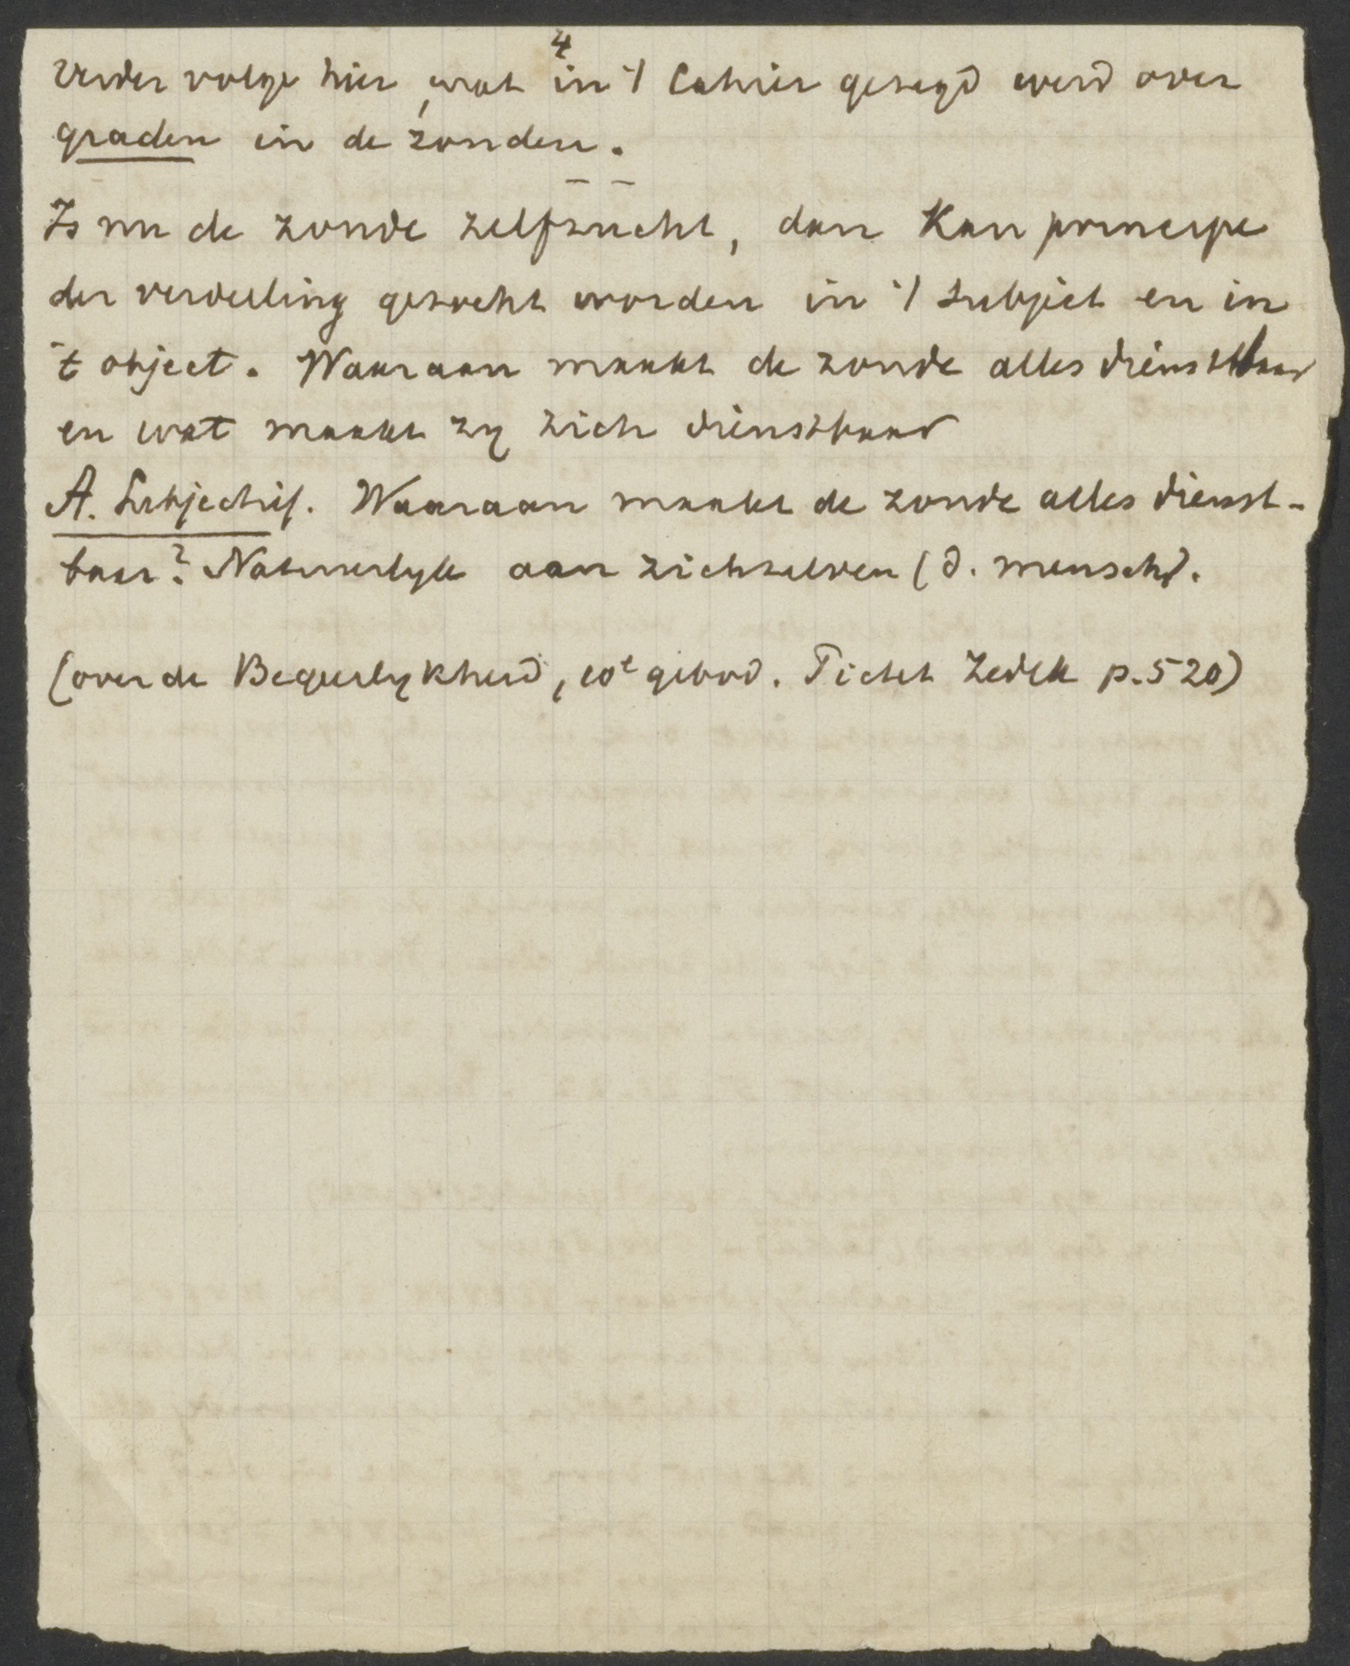 4
Verder volge hier, wat in 't Cahier gezegd werd over
graden in de zonden.
Is nu de zonde zelfzucht, dan kan principe
der verdeeling gezocht worden in 't subject en in
't object. Waaraan maakt de zonde alles dienstbaar
en wat maakt zy zich dienstbaar
A. Subjectief. Waaraan maakt de zonde alles dienst-
baar? Natuurlyk aan zichzelven (d. mensch).
(over de Begeerlykheid, 10e gebod. Pictet Zedek p. 520)